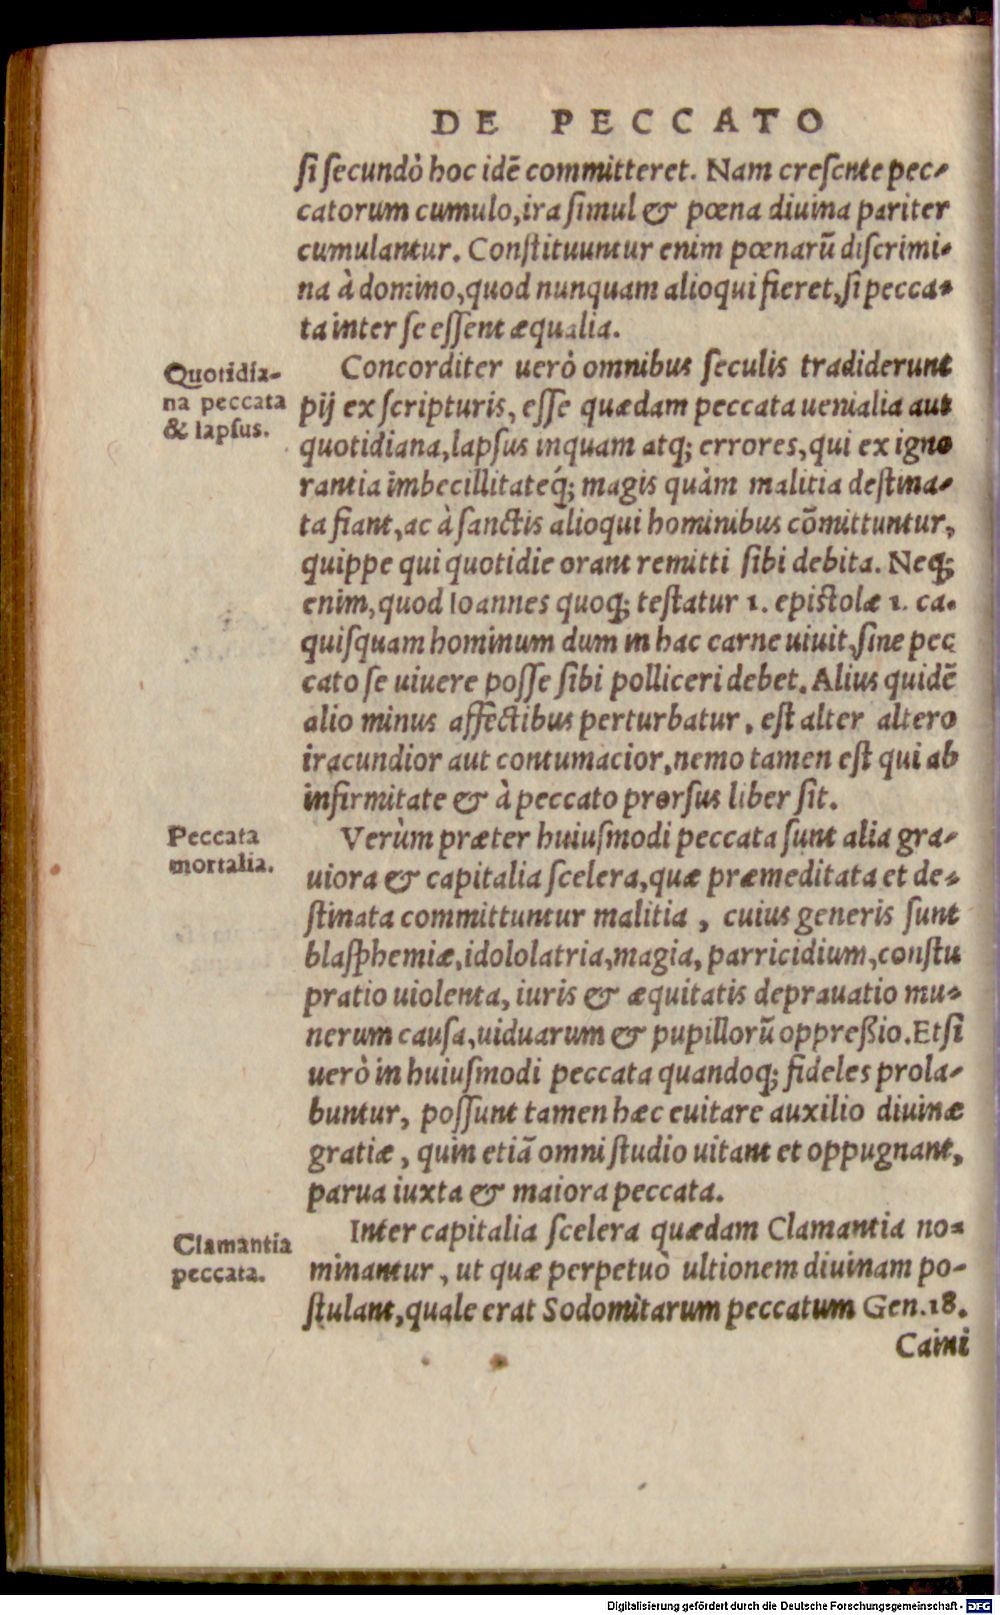 DE PECCATO
si secundò hoc idē committeret. Nam crescente pec-
catorum cumulo, ira simul & pœna diuina pariter
cumulantur. Constituuntur enim pœnarū discrimi-
na à domino, quod nunquam alioqui fieret, si pecca-
ta inter se essent æqualia.
Quotidia-
na peccata
& lapsus.
Concorditer uerò omnibus seculis tradiderunt
pij ex scripturis, esse quædam peccata uenialia aut
quotidiana, lapsus inquam atq; errores, qui ex igno
rantia imbecillitateq́; magis quàm malitia destina-
ta fiant, ac à sanctis alioqui hominibus cōmittuntur,
quippe qui quotidie orant remitti sibi debita. Neq;
enim, quod Ioannes quoq; testatur 1. epistolæ 1. ca.
quisquam hominum dum in hac carne uiuit, sine pec
cato se uiuere posse sibi polliceri debet. Alius quidē
alio minus affectibus perturbatur, est alter altero
iracundior aut contumacior, nemo tamen est qui ab
infirmitate & à peccato prorsus liber sit.
Peccata
mortalia.
Verùm præter huiusmodi peccata sunt alia gra-
uiora & capitalia scelera, quæ præmeditata et de-
stinata committuntur malitia, cuius generis sunt
blasphemiæ, idololatria, magia, parricidium, constu
pratio uiolenta, iuris & æquitatis deprauatio mu-
nerum causa, uiduarum & pupillorū oppreßio. Etsi
uerò in huiusmodi peccata quandoq; fideles prola-
buntur, possunt tamen hæc euitare auxilio diuinæ
gratiæ, quin etiā omni studio uitant et oppugnant,
parua iuxta & maiora peccata.
Clamantia
peccata.
Inter capitalia scelera quædam Clamantia no-
minantur, ut quæ perpetuò ultionem diuinam po-
stulant, quale erat Sodomitarum peccatum Gen. 18.
Caini
Digitalisierung gefördert durch die Deutsche Forschungsgemeinschaft - DFG